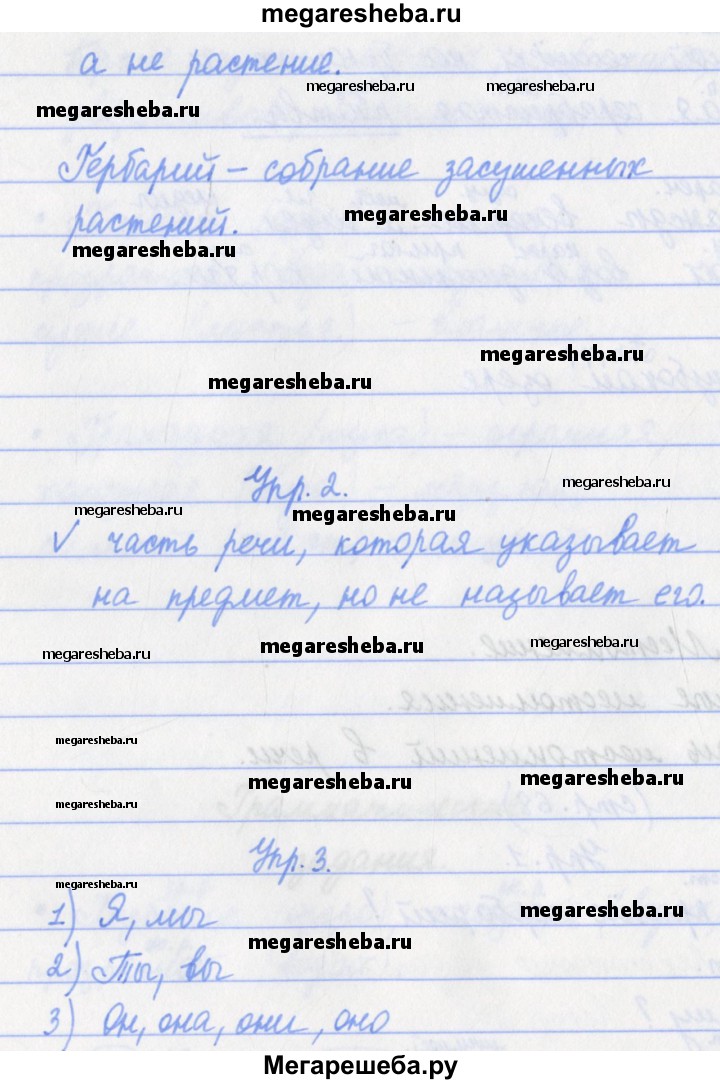 megaresheba.ru
а не растение.
megaresheba.ru megaresheba.ru
megaresheba.ru
Гербарий – собрание засушенных
megaresheba.ru
растений.
megaresheba.ru
megaresheba.ru
megaresheba.ru
Упр. 2.
megaresheba.ru
megaresheba.ru
megaresheba.ru
√ часть речи, которая указывает
на предмет, но не называет его.
megaresheba.ru
megaresheba.ru
megaresheba.ru
megaresheba.ru
megaresheba.ru
megaresheba.ru
megaresheba.ru
Упр. 3.
megaresheba.ru
1) Я, мы
megaresheba.ru
megaresheba.ru
2) Ты, вы
3) Он, она, они, оно
Мегарешеба.ру